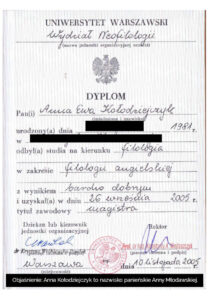 UNIWERSYTET WARSZAWSKI
Wydział Neofilologii
(nazwa jednostki organizacyjnej uczelni)
DYPLOM
Pan(i) Anna Ewa Kołodziejczyk
urodzony(a) dnia 1981
w
odbył(a) studia na kierunku filologia
w zakresie filologii angielskiej
z wynikiem bardzo dobrym
i uzyskał(a) w dniu 26 września 2005 r.
tytuł zawodowy magistra
Dziekan lub kierownik
jednostki organizacyjnej
Rektor
Warszawa dnia 10 listopada 2005 r.
Objaśnienie: Anna Kołodziejczyk to nazwisko panieńskie Anny Młodawskiej